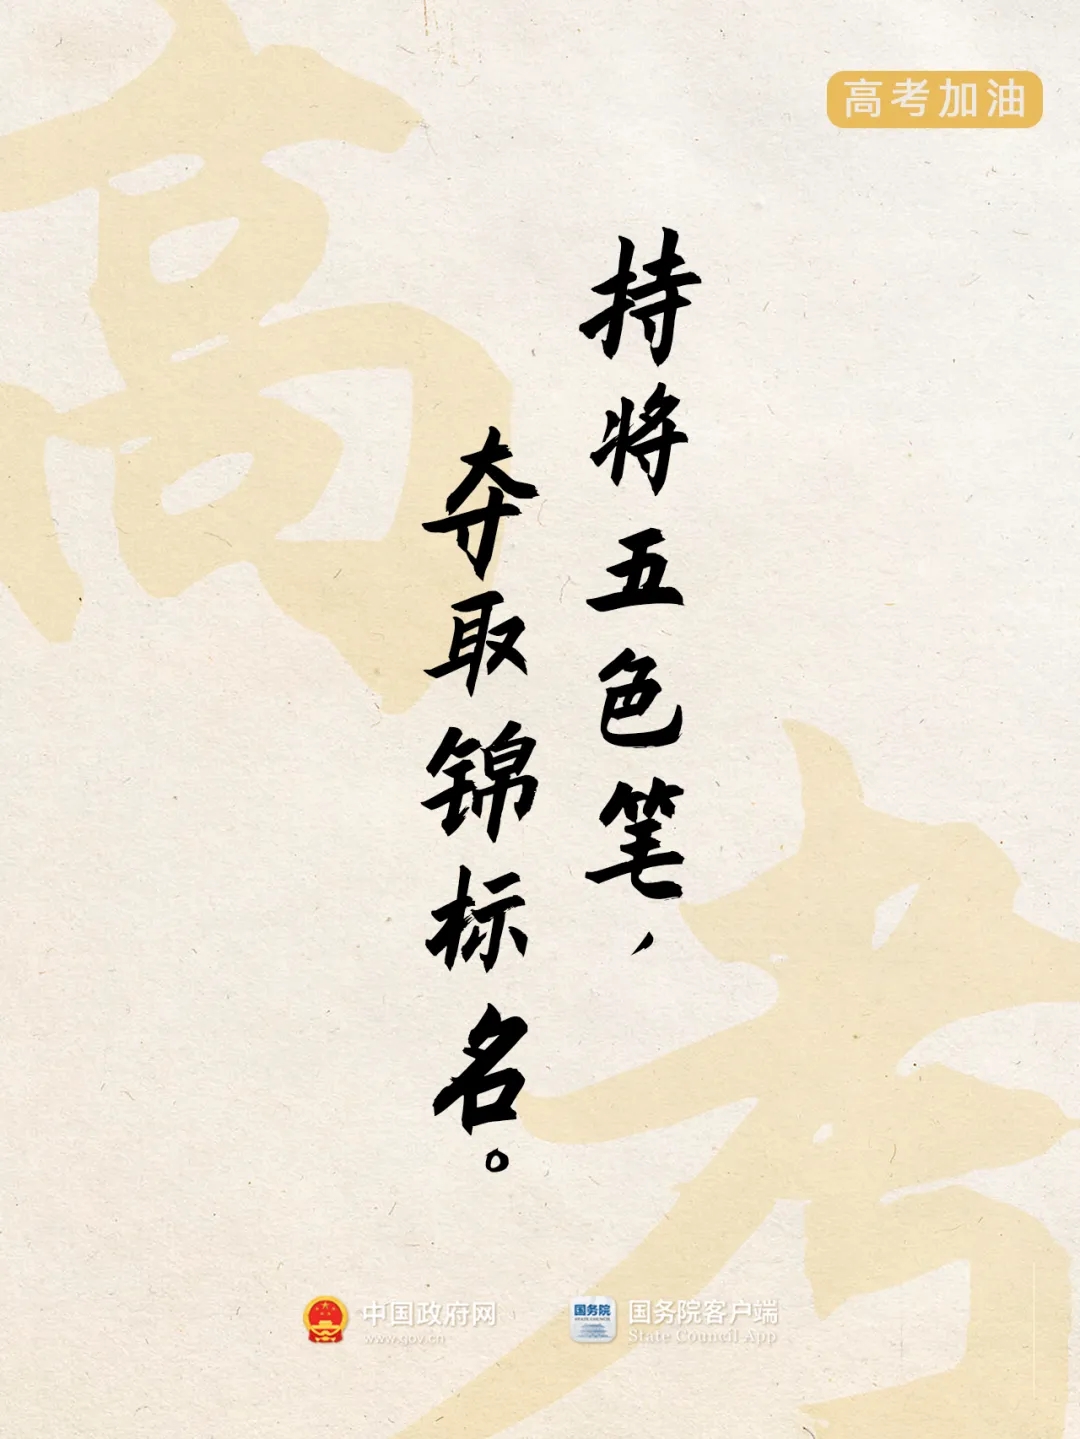 高考
高考加油
持将五色笔，
夺取锦标名。
中国政府网
www.gov.cn
国务院
STATE COUNCIL APP
国务院客户端
State Council App